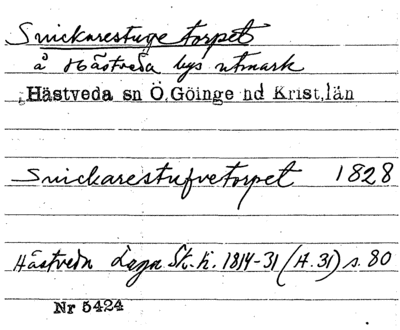 Snickarestuge torpet
å Hästveda bys utmark
Hästveda sn Ö.Göinge hd Krist.län
Snickarestufvetorpet 1828
Hästveda Laga Sk. h. 1814-31 (A.31) s. 80
Nr 5424